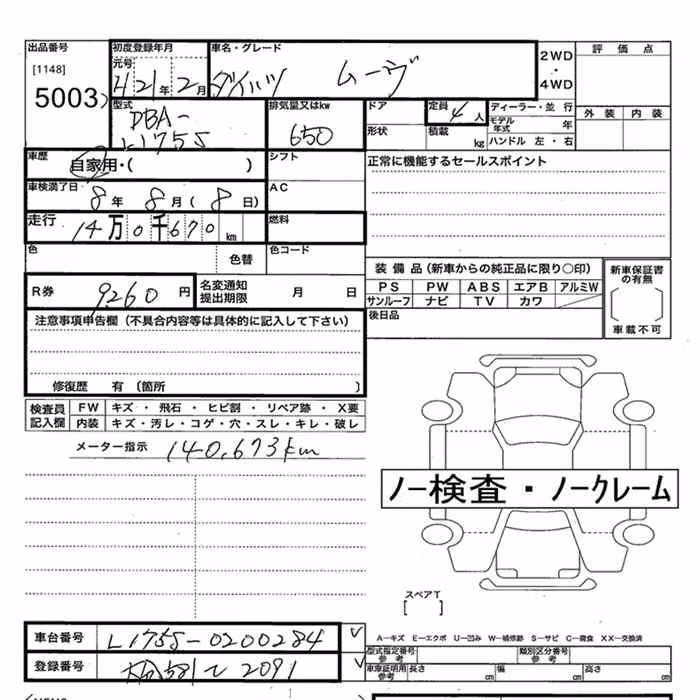 出品番号 初度登録年月 車名・グレード 2WD 評価点
[1148] 元号 ・
5003 H21年2月 ダイハツ ムーヴ 4WD
型式 排気量又はkw ドア 定員 4人 ディーラー・並行 外装 内装
DBA- モデル年式 年
L175S 650 形状 積載 kg ハンドル 左・右
車歴 自家用・( ) シフト 正常に機能するセールスポイント
車検満了日 8年 8月(8日) AC
走行 14万0千670km 燃料
色 色替 色コード
装備品(新車からの純正品に限り○印) 新車保証書の有無
R券 9260円 名変通知提出期限 月 日 PS PW ABS エアB アルミW
サンルーフ ナビ TV カワ
注意事項申告欄(不具合内容等は具体的に記入して下さい) 後日品 車載不可
修復歴 有 〔箇所 〕
検査員 FW キズ・飛石・ヒビ割・リペア跡・X要
記入欄 内装 キズ・汚レ・コゲ・穴・スレ・キレ・破レ
メーター指示 140,673km
ノー検査・ノークレーム
スペアT
[ ]
車台番号 L175S-0200284 A-キズ E-エクボ U-凹み W-補修跡 S-サビ C-腐食 XX-交換済
型式指定番号 参考 類別区分番号 参考
登録番号 581 て 2091 車庫証明用参考 長さ cm 幅 cm 高さ cm